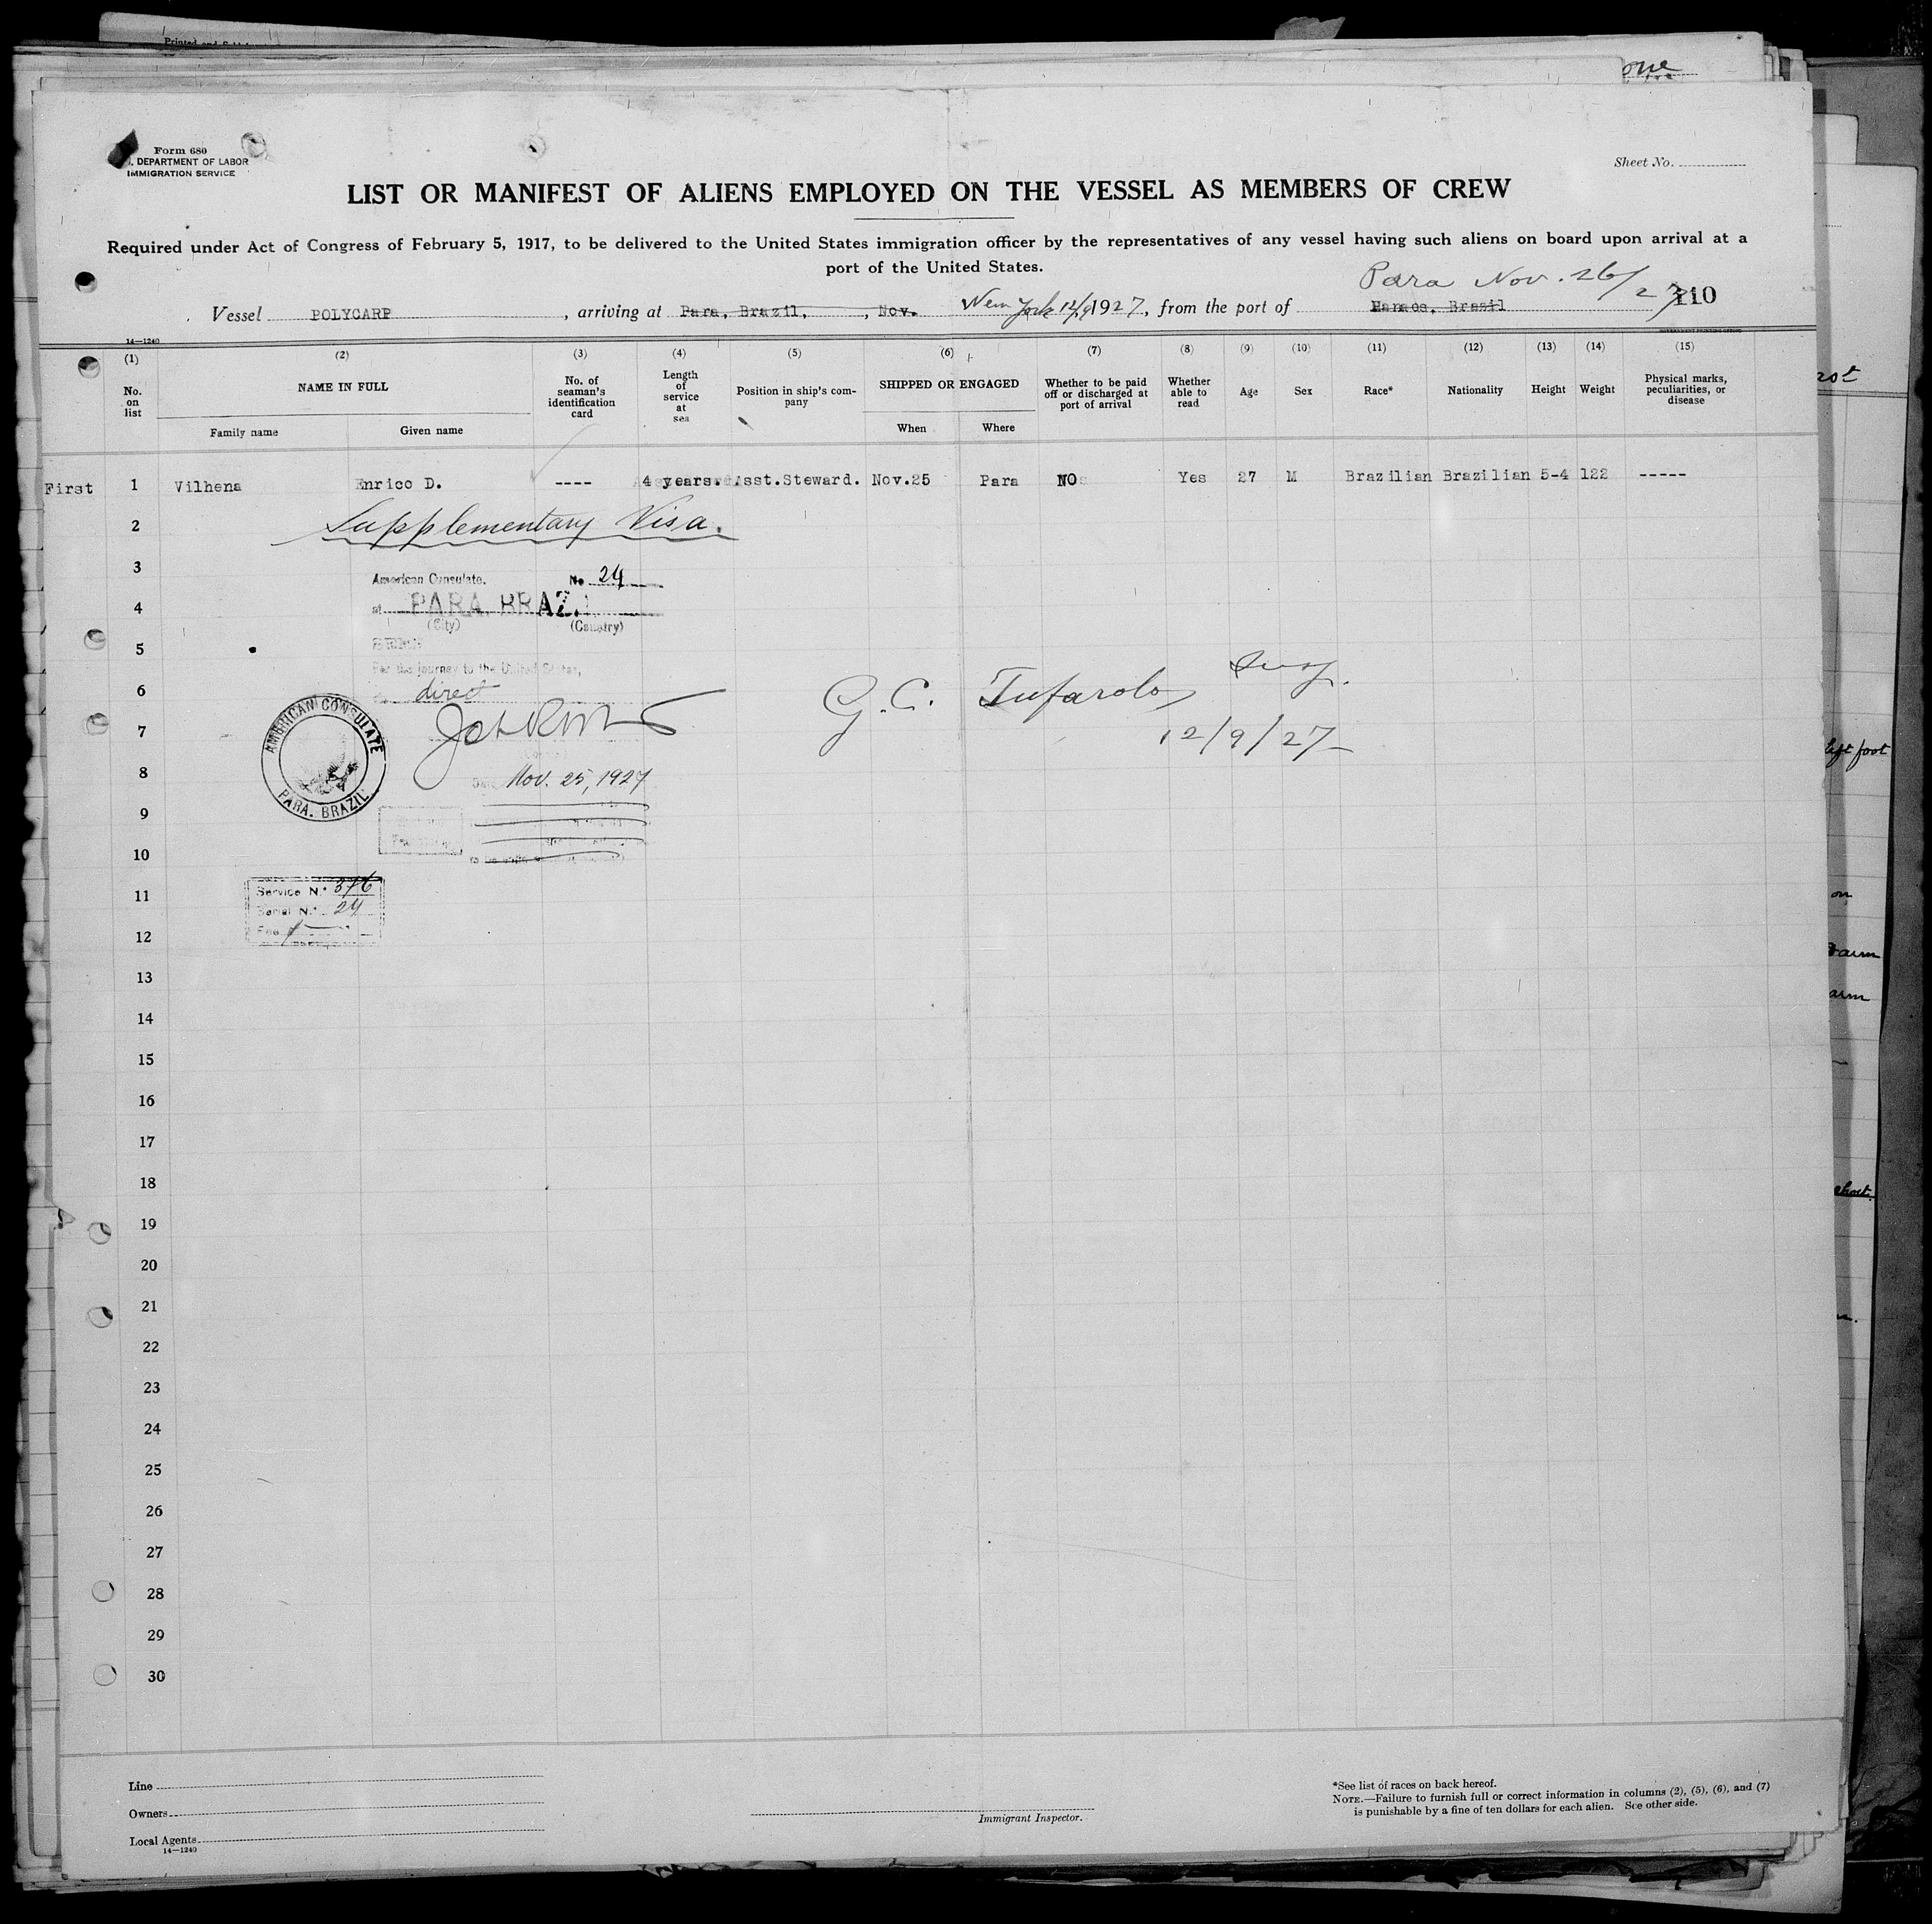 Form 680
. DEPARTMENT OF LABOR
IMMIGRATION SERVICE
Sheet No.
LIST OR MANIFEST OF ALIENS EMPLOYED ON THE VESSEL AS MEMBERS OF CREW
Required under Act of Congress of February 5, 1917, to be delivered to the United States immigration officer by the representatives of any vessel having such aliens on board upon arrival at a
port of the United States.
Para Nov. 26/27
Vessel POLYCARP, arriving at Para, Brazil, , Nov. New York 12/9 1927, from the port of Manaos, Brazil 110
14—1240
(1) (2) (3) (4) (5) (6) (7) (8) (9) (10) (11) (12) (13) (14) (15)
No. on list NAME IN FULL No. of seaman's identification card Length of service at sea Position in ship's company SHIPPED OR ENGAGED Whether to be paid off or discharged at port of arrival Whether able to read Age Sex Race* Nationality Height Weight Physical marks, peculiarities, or disease
Family name Given name When Where
First 1 Vilhena Enrico D. ---- 4 years. Asst.Steward. Nov.25 Para NO Yes 27 M Brazilian Brazilian 5-4 122 -----
2 Supplementary Visa.
3 American Consulate. No 24
4 at PARA, BRAZ
(City) (Country)
5
For the journey to the United States,
6 direct
G. C. Tufarolo
7
12/9/27
AMERICAN CONSULATE
PARA. BRAZIL
8 Nov. 25, 1927
9
10
11 Service N.º 376
Serial N.º 24
12 Fee
13
14
15
16
17
18
19
20
21
22
23
24
25
26
27
28
29
30
Line
Owners
Local Agents
14—1240
Immigrant Inspector.
*See list of races on back hereof.
NOTE.—Failure to furnish full or correct information in columns (2), (5), (6), and (7)
is punishable by a fine of ten dollars for each alien. See other side.
left foot
arm